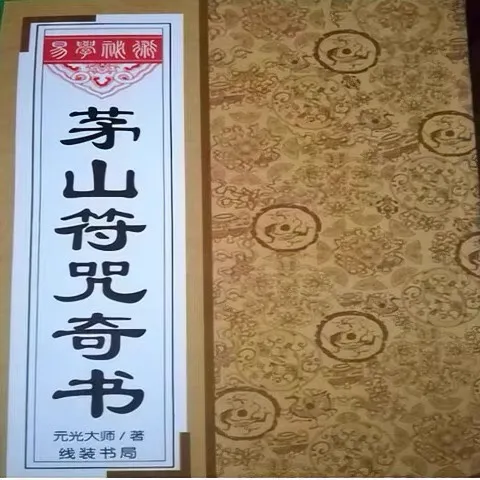 易學祕術
茅山符咒奇书
元光大师/著
线装书局